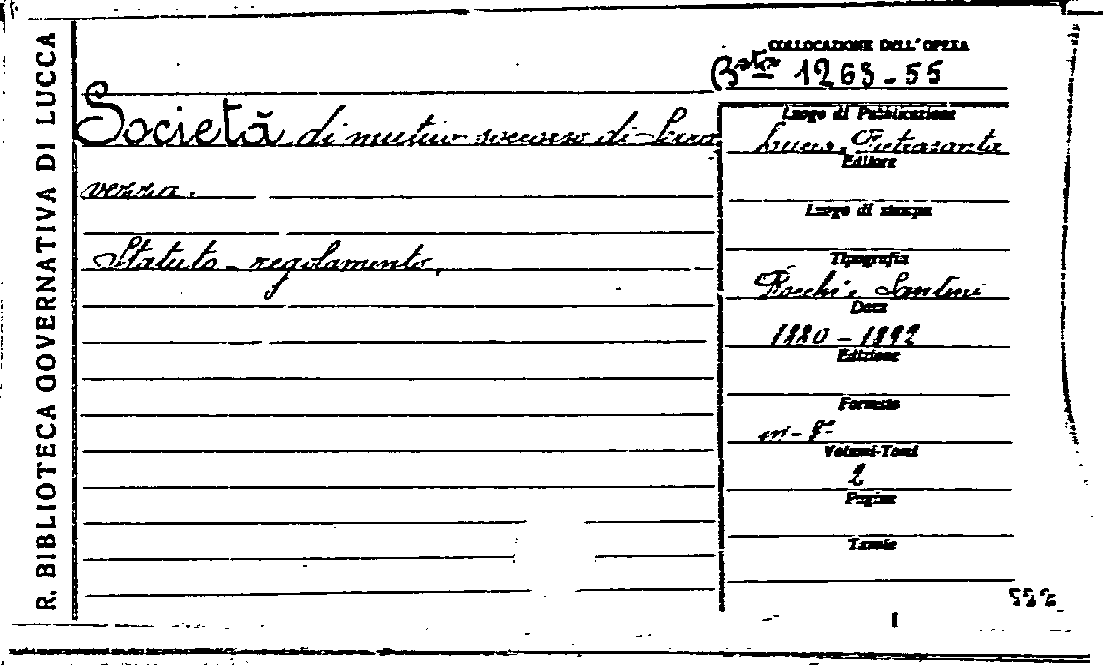 R. BIBLIOTECA GOVERNATIVA DI LUCCA
COLLOCAZIONE DELL'OPERA
Bta 1263-55
Società di mutuo soccorso di Serra
vezza.
Statuto-regolamento.
Luogo di Pubblicazione
Lucca, Pietrasanta
Editore
Luogo di stampa
Tipografia
Rocchi e Santini
Data
1880-1892
Edizione
Formato
in-8°
Volumi-Tomi
2
Pagine
Tavole